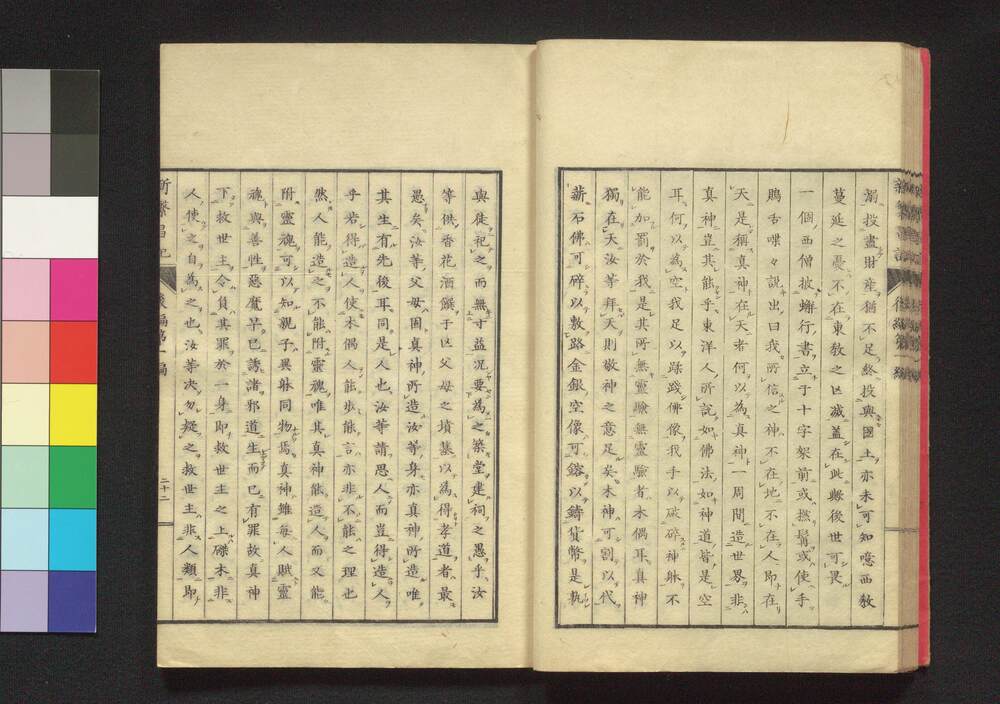 溺投盡財産猶不足終投與國土亦未可知噫西教
蔓延之憂不在東教之凶滅蓋在此緣後世可畏
一個西僧披蠏行書立于十字架前或撚鬚或使手
鴃舌喋々說出曰我所信之神不在地不在人即在
天是稱真神在天者何以為真神一周間造世界非
真神豈其能乎東洋人所說如佛法如神道皆是空
耳何以為空我足以蹂踐佛像我手以破碎神躰不
能加罰於我是其所無靈驗無靈驗者木偶耳真神
獨在天汝等拜天則敬神之意足矣木神可割以代
薪石佛可碎以敷路金銀空像可鎔以鑄貨幣是孰
與徒祀之而無寸益况要為之築堂建祠之愚乎汝
等供香花酒饌于凶父母之墳墓以為得孝道者最
愚矣汝等父母固真神所造汝等身亦真神所造唯
其生有先後耳同是人也汝等請思人而豈得造人
乎若得造人使木偶人能步能言亦非不能之理也
然人能造之不能附靈魂唯其真神能造人而又能
附靈魂可以知親子異躰同物焉真神雖每人賦靈
魂與善性惡魔早已誘諸邪道生而已有罪故真神
下救世主令負其罪於一身即救世主之上磔木非
人使之自為之也汝等决勿疑之救世主非人類即
新繁昌記
後編第一編
二十二